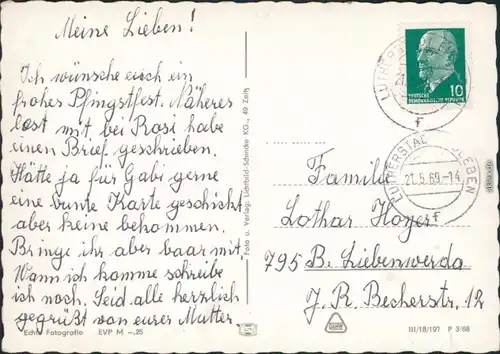 Meine Lieben!
Ich wünsche euch ein
frohes Pfingstfest. Näheres
lest mit, bei Rosi habe
einen Brief geschrieben.
Hätte ja für Gabi gerne
eine bunte Karte geschickt
aber keine bekommen.
Bringe ihr aber baar mit.
Wann ich komme schreibe
ich noch. Seid alle herzlich
gegrüßt von eurer Mutter.
Echte Fotografie EVP M -,25
Foto u. Verlag: Lichtbild-Schincke KG., 49 Zeitz
10
DEUTSCHE
DEMOKRATISCHE REPUBLIK
LUTHERSTADT EISLEBEN
21.5.69-14
f
Familie
Lothar Hoyer
795 B. Liebenwerda
J. R. Becherstr. 12
III/18/197 P 3/68